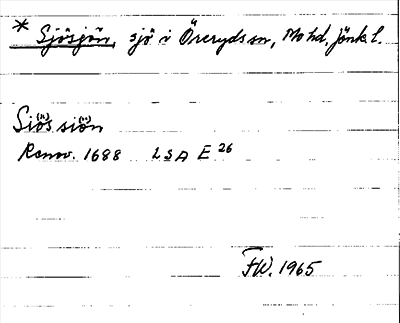 * Sjösjön, sjö i Öreryds sn, Mo hd, Jönk. l.
Siös siön
Renov. 1688 LSA E 26
FW. 1965